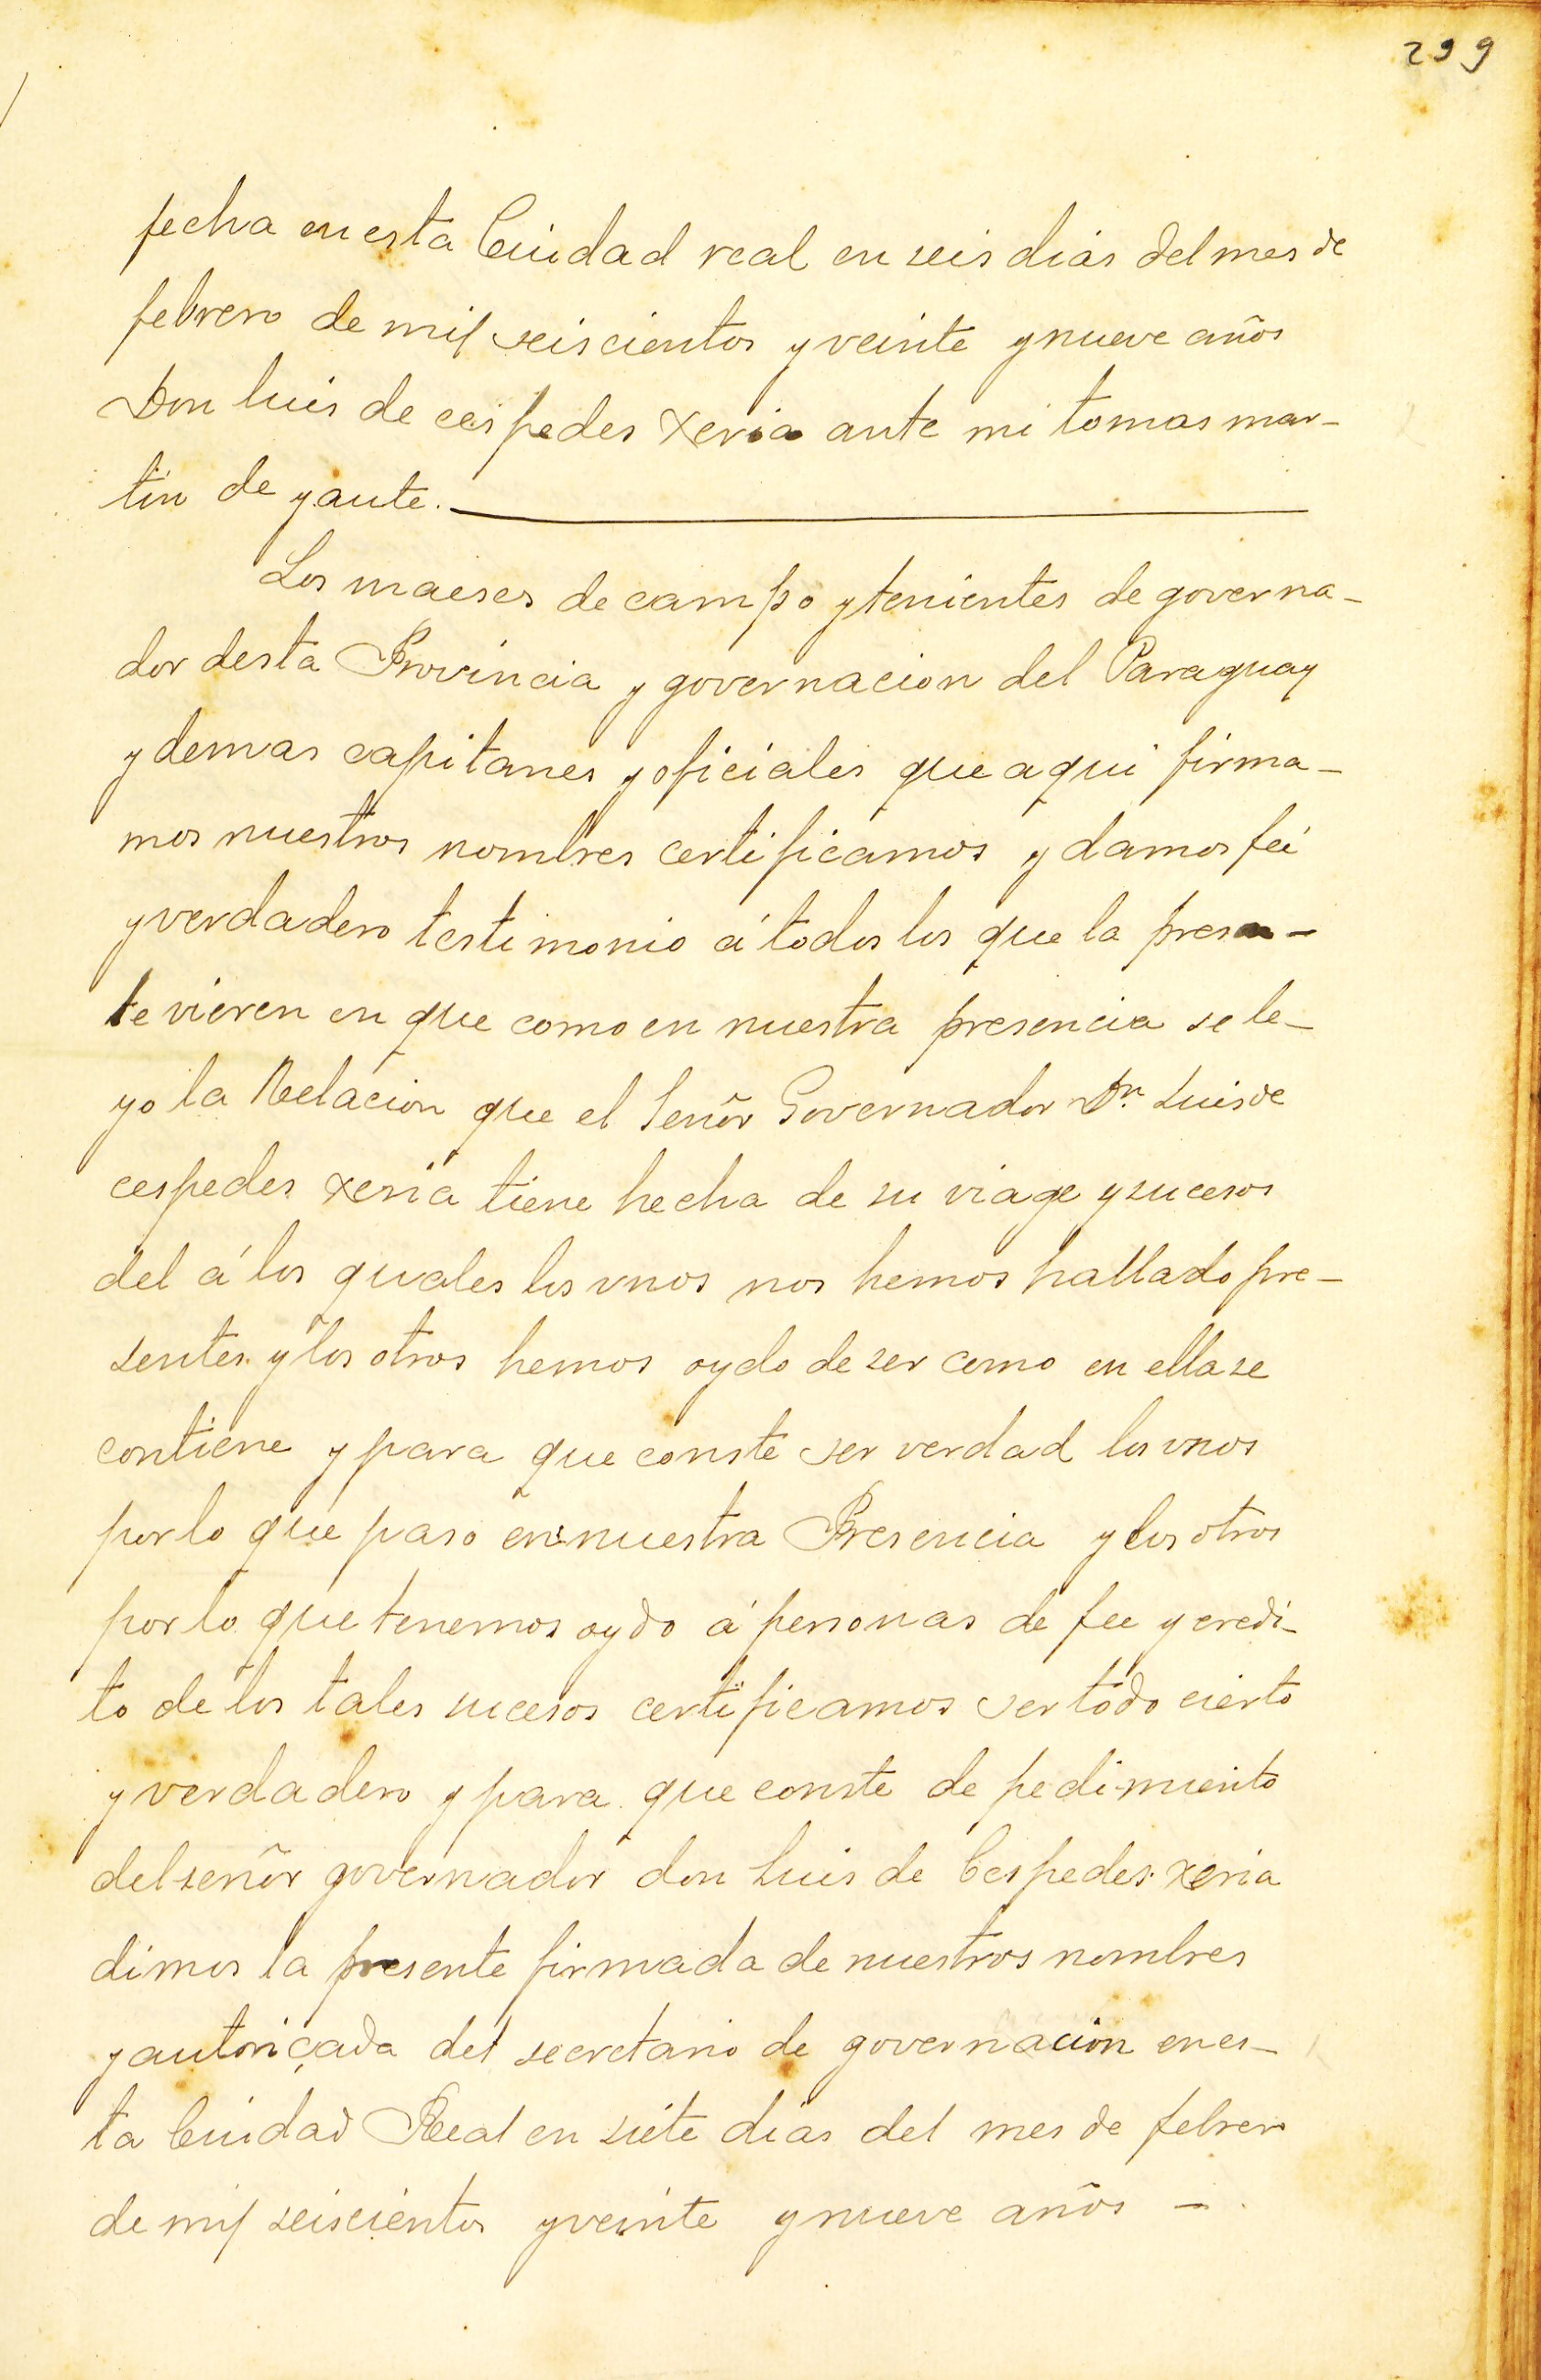 299
fecha en esta Ciudad real en seis dias del mes de
febrero de mil seiscientos y veinte y nueve años
Don luis de cespedes xeria ante mi tomas mar-
tin de yante.
Los maeses de campo y tenientes de governa-
dor desta Provincia y governacion del Paraguay
y demas capitanes y oficiales que aqui firma-
mos nuestros nombres certificamos y damos feé
y verdadero testimonio á todos los que la presen-
te vieren en que como en nuestra presencia se le-
yo la Relacion que el Señor Governador Dn. Luis de
cespedes xeria tiene hecha de su viage y sucesos
del á los quales los vnos nos hemos hallado pre-
sentes y los otros hemos oydo de ser como en ella se
contiene y para que conste ser verdad los vnos
por lo que paso en nuestra Presencia y los otros
por lo que tenemos oydo á personas de fee y credi-
to de los tales sucesos certificamos ser todo cierto
y verdadero y para que conste de pedimiento
del señor governador don Luis de Cespedes xeria
dimos la presente firmada de nuestros nombres
y autoriçada del secretario de governacion en es-
ta Ciudad Real en siete dias del mes de febrero
de mil seiscientos y veinte y nueve años -